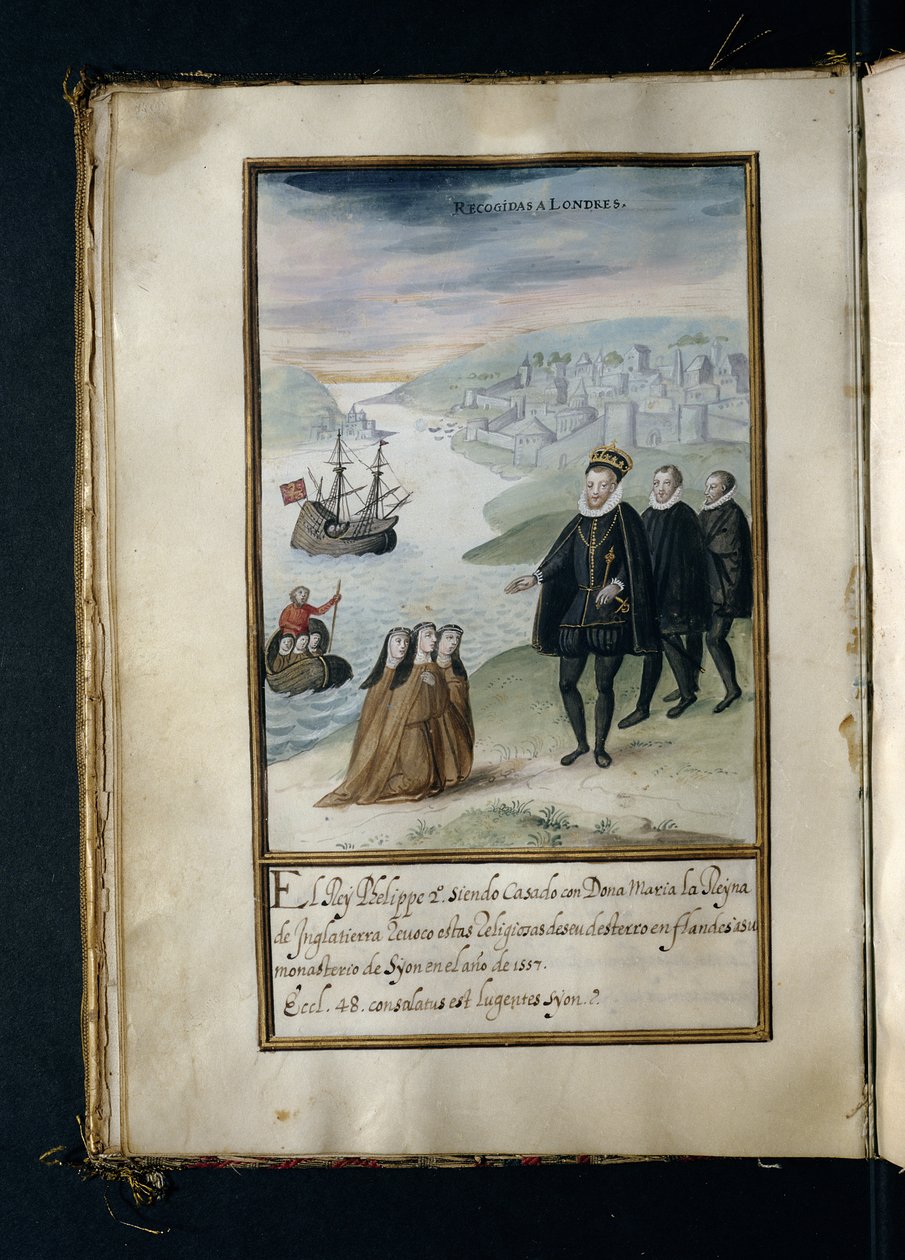 RECOGIDAS A LONDRES.
EL Rey Phelippe 2º. siendo Casado con Dona Maria la Reyna
de Inglatierra Revoco estas Religiozas de seu desterro en flandes asu
monasterio de Syon en el año de 1557.
Eccl. 48. consalatus est lugentes Syon.